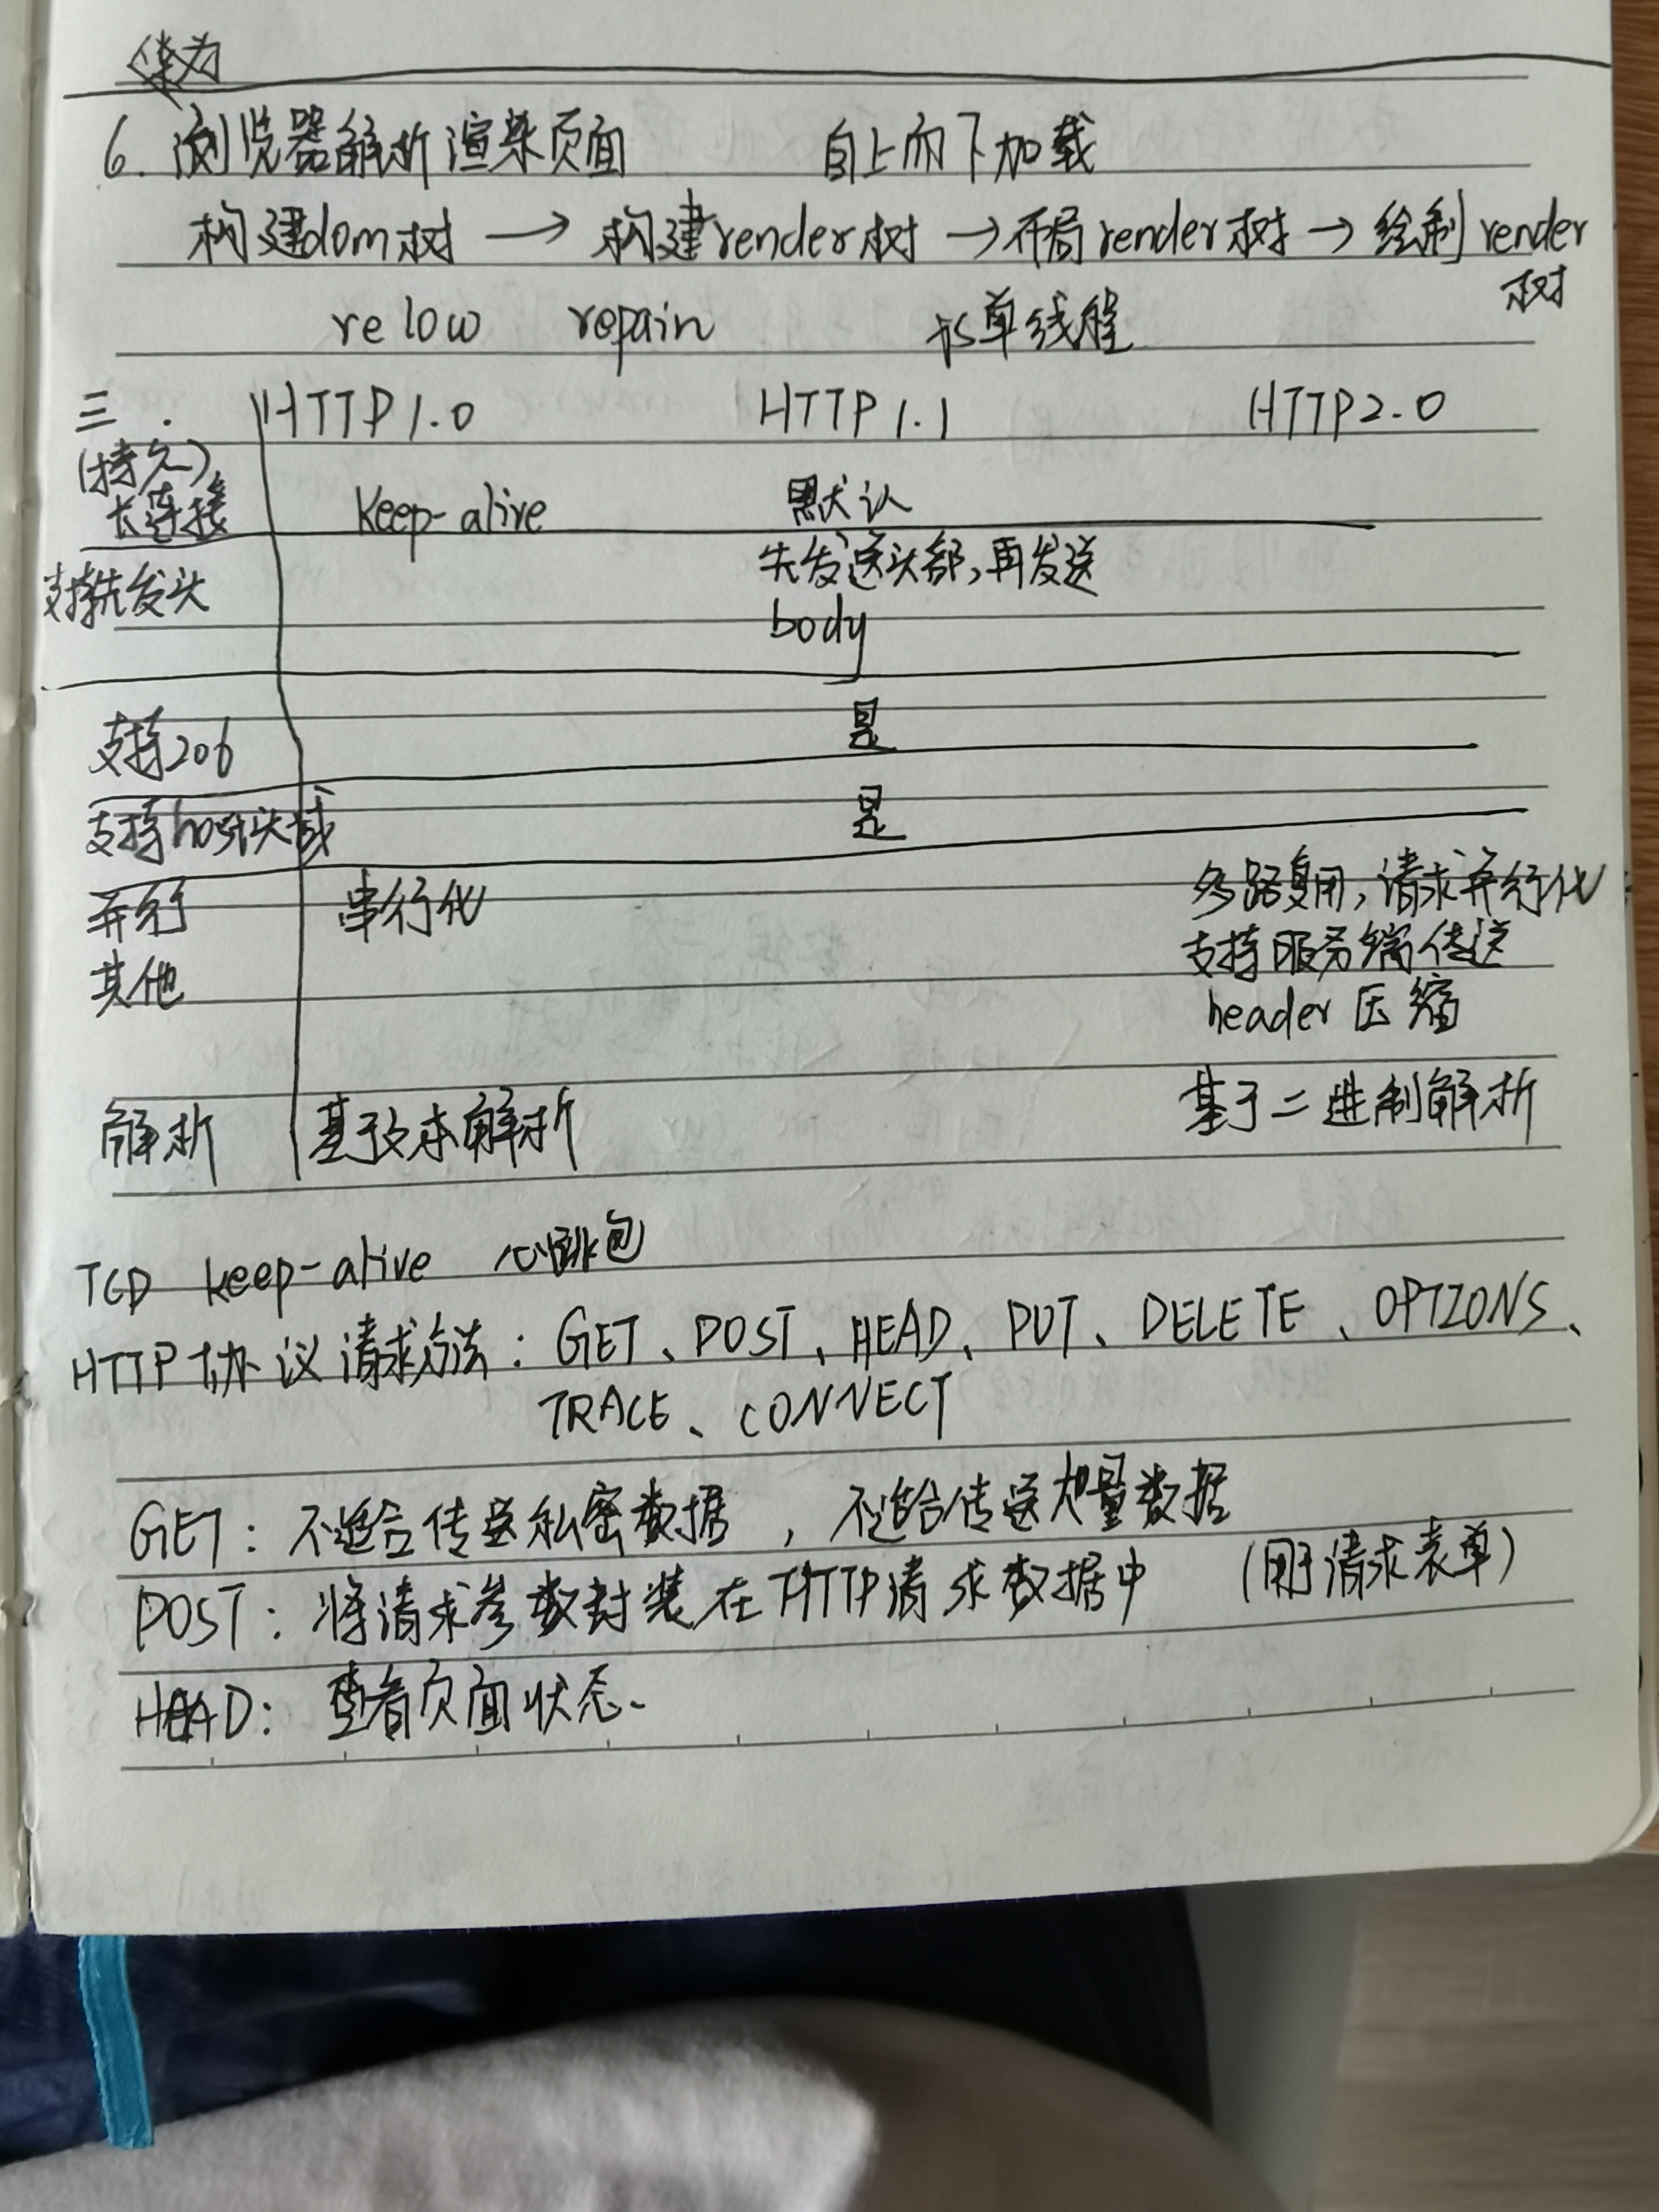 华为
6. 浏览器解析渲染页面 自上而下加载
构建dom树 → 构建render树 → 布局render树 → 绘制render
树
relow repain js单线程
三. HTTP1.0 HTTP1.1 HTTP2.0
(持久)
长连接 keep-alive 默认
支持先发头 先发送头部,再发送
body
支持206 是
支持host头域 是
并行 串行化 多路复用,请求并行化
其他 支持服务端传送
header压缩
解析 基于文本解析 基于二进制解析
TCP keep-alive 心跳包
HTTP协议请求方法: GET、POST、HEAD、PUT、DELETE、OPTIONS、
TRACE、CONNECT
GET: 不适合传送私密数据, 不适合传送大量数据
POST: 将请求参数封装在HTTP请求数据中 (用于请求表单)
HEAD: 查看页面状态.